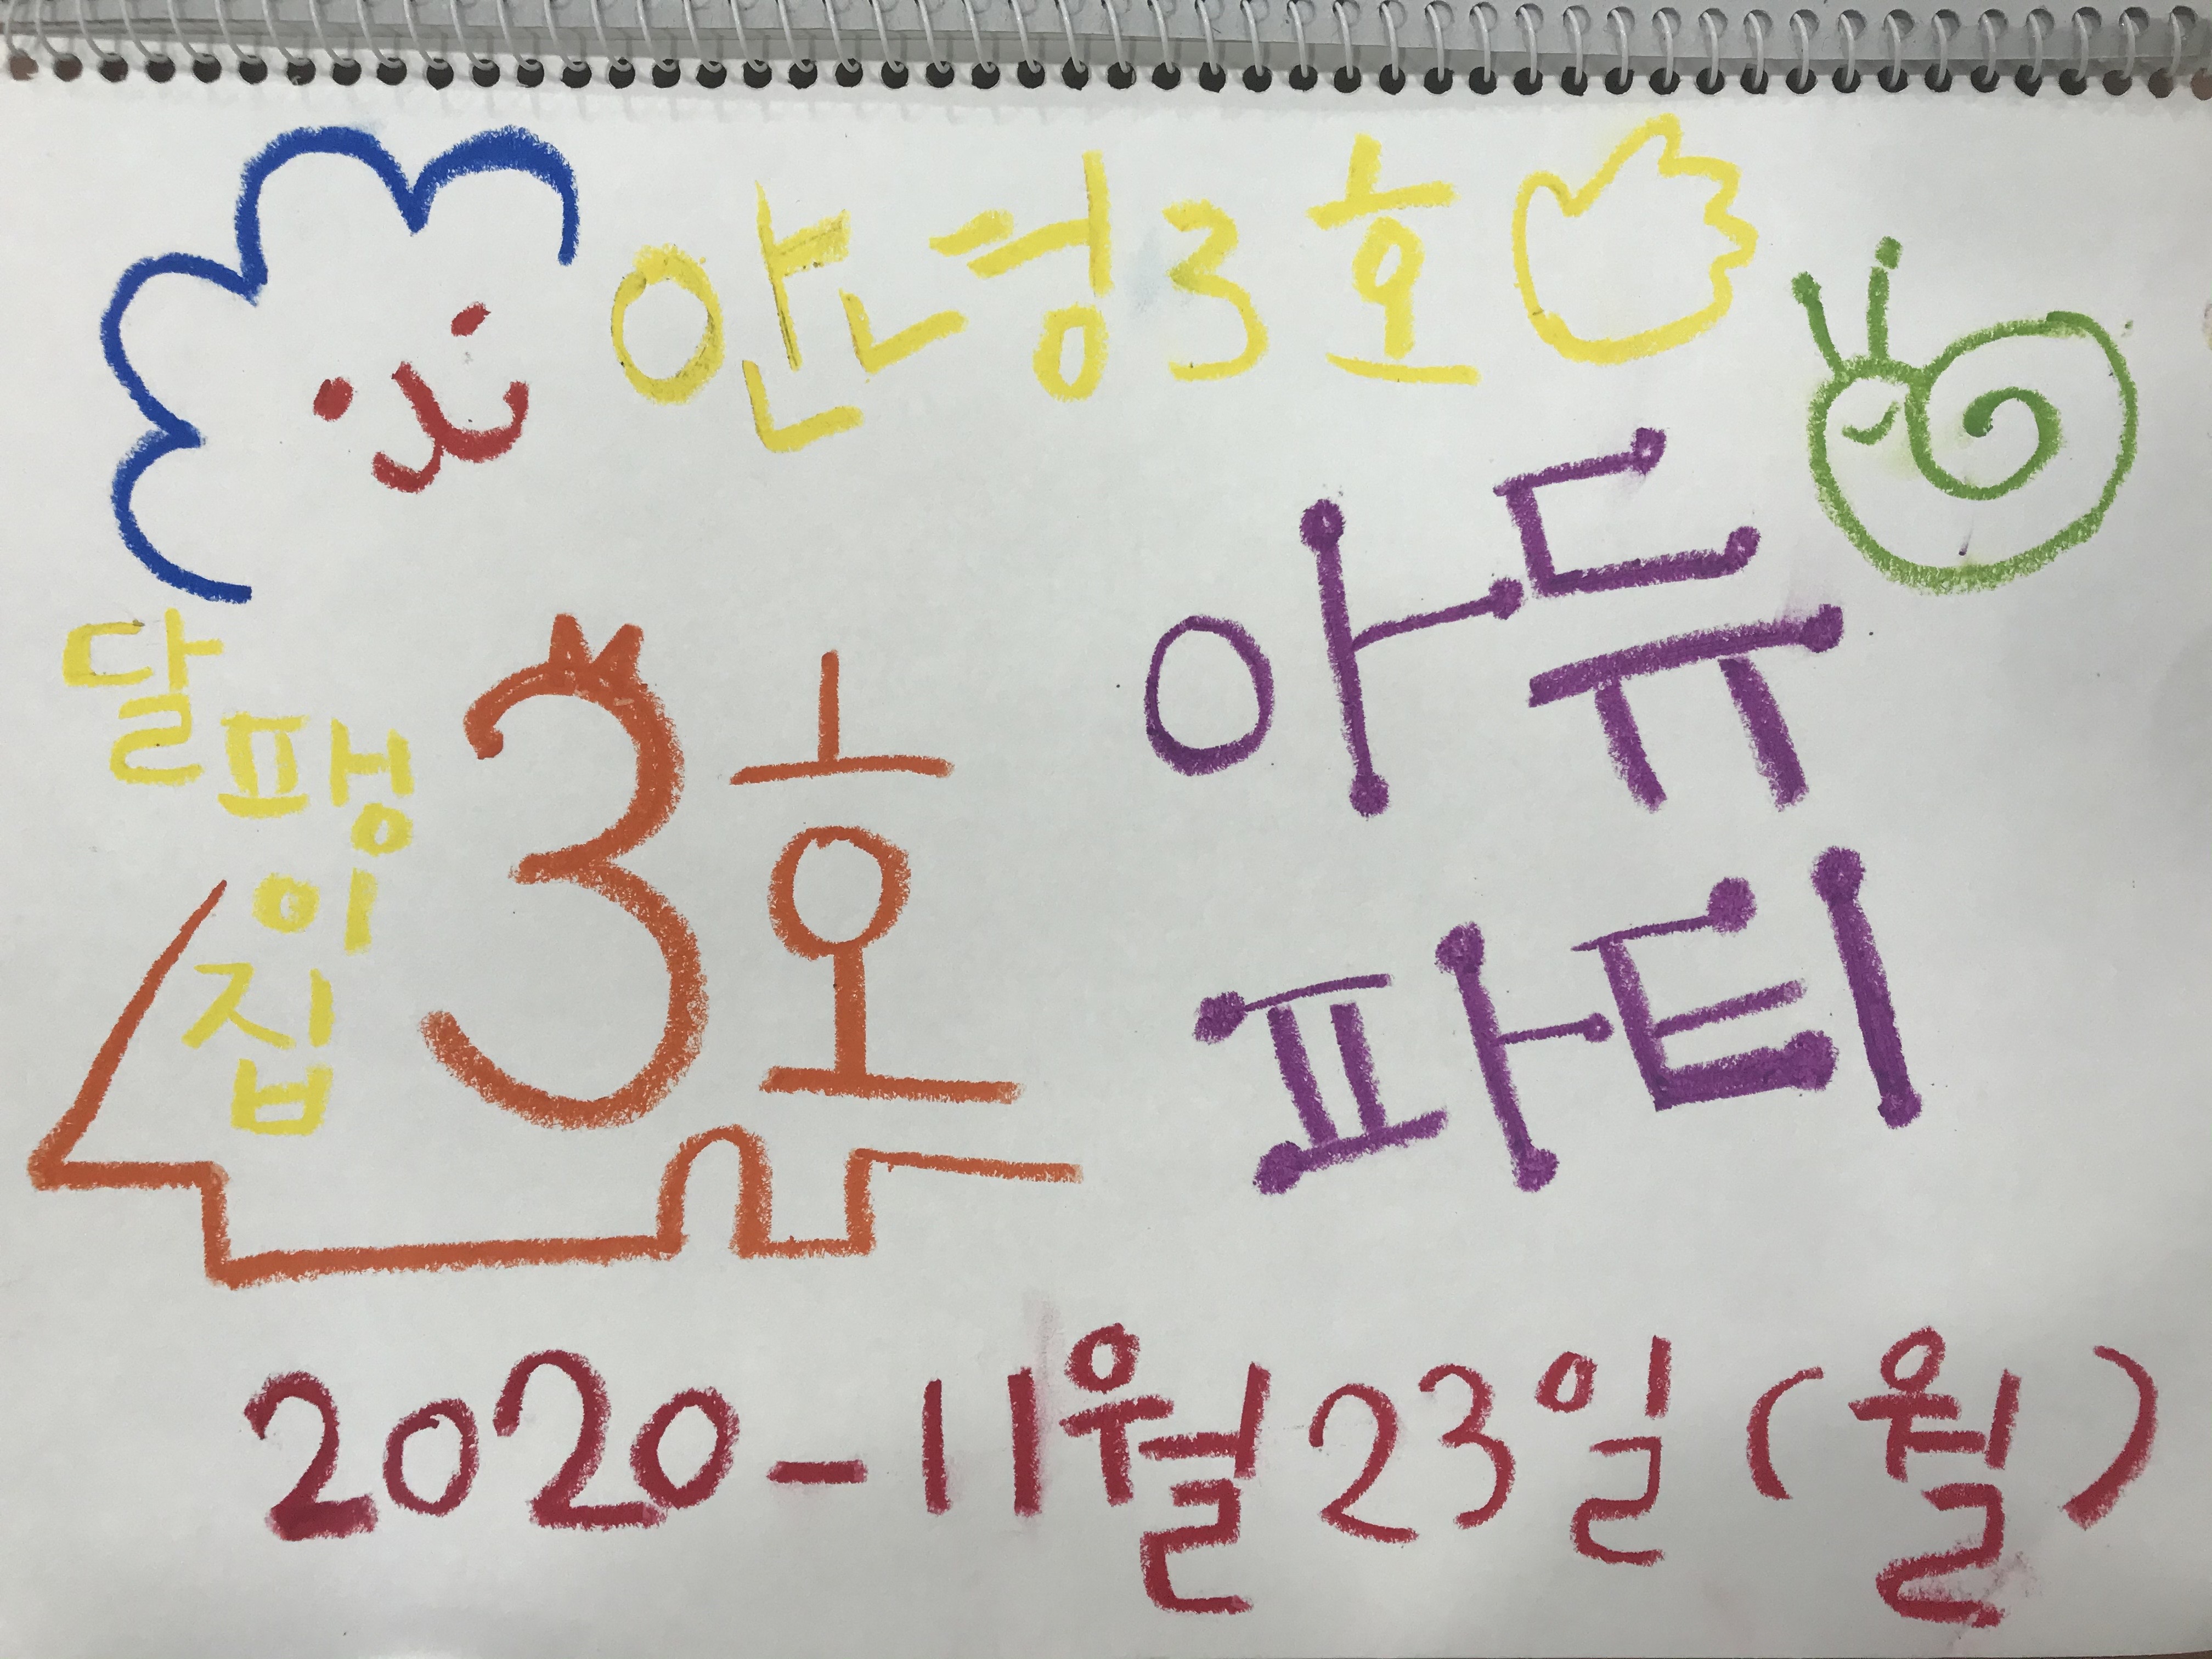 안녕3호
아듀
달팽이집
3호
파티
2020-11월23일(월)